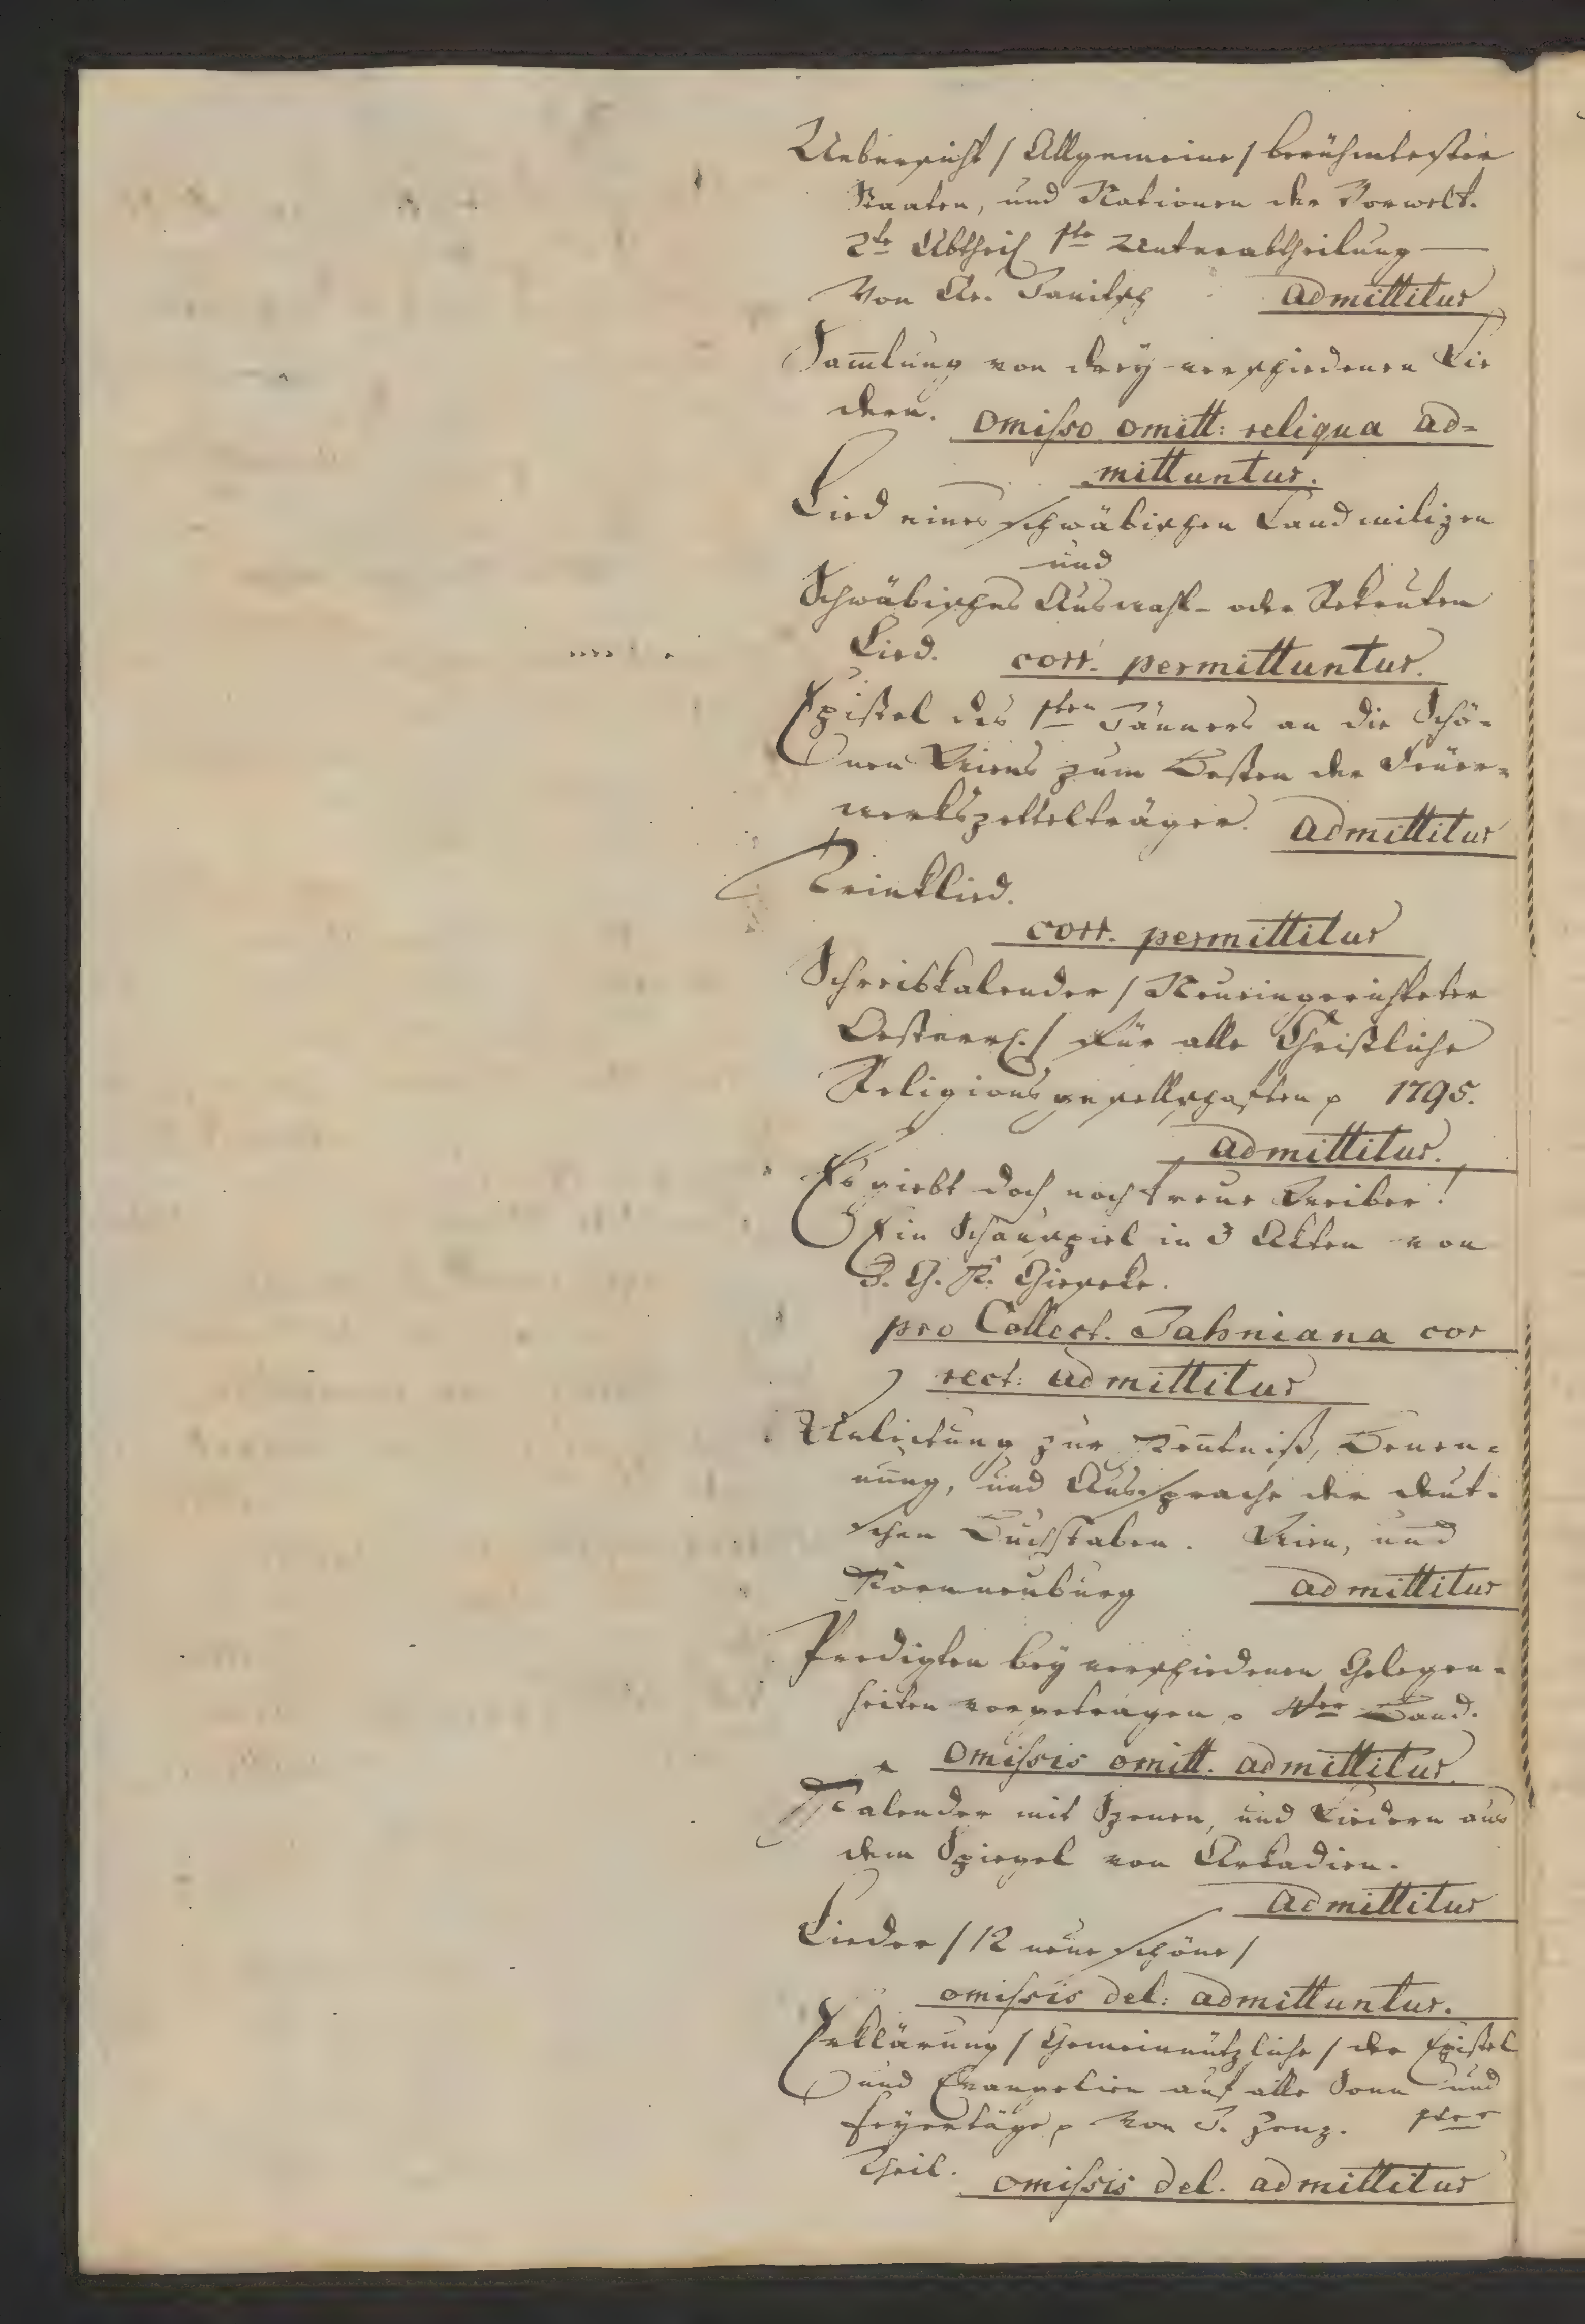 Uebersicht / Allgemeine / berühmtester
Staaten, und Nationen der Vorwelt.
2te Abtheil 1te Unterabtheilung —
Von Chr. Janitsch admittitur
Sam̄lung von drey verschiedenen Lie
dern. omisso omitt: reliqua ad=
mittuntur.
Lied eines schwäbischen Landmilizen
und
Schwäbisches Auswahl- oder Rekruten
Lied. corr. permittuntur.
Epistel des 1ten Jänners an die Schö-
nen Wiens zum Besten der Feuer=
werkszettelträger. admittitur
Trinklied.
corr. permittitur
Schreibkalender / Neueingerichteter
Oesterrch. / für alle Christliche
Religionsgesellschaften p 1795.
admittitur.
Es giebt doch noch treue Weiber!
Ein Schauspiel in 3 Akten von
G. K. Gieseke.
pro Collect. Jahniana cor
rect: admittitur
Anleitung zur Ken̄tniß, Benen=
nung, und Aussprache der deut-
schen Buchstaben. Wien, und
Kornneuburg admittitur
Predigten bey verschiedenen Gelegen-
heiten vorgetragen p 4ter Band.
omissis omitt. admittitur.
Kalender mit Szenen, und Liedern aus
dem Spiegel von Arkadien.
admittitur
Lieder / 12 neue schöne /
omissis del: admittuntur.
Erklärung / Gemeinnützliche / der Epistel
und Evangelien auf alle Sonn und
Feyertäge p von J. Zenz. 1ter
Theil. omissis del. admittitur